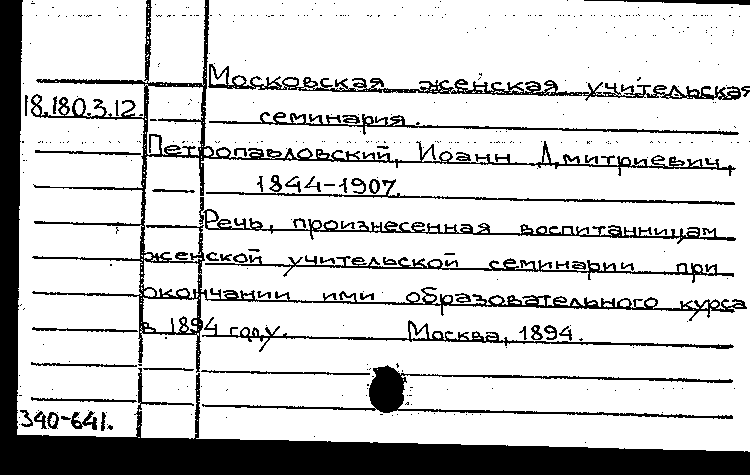 Московская женская учительская
18.180.3.12. семинария.
Петропавловский, Иоанн Дмитриевич,
1844-1907.
Речь, произнесенная воспитанницам
женской учительской семинарии при
окончании ими образовательного курса
в 1894 году. Москва, 1894.
340-641.